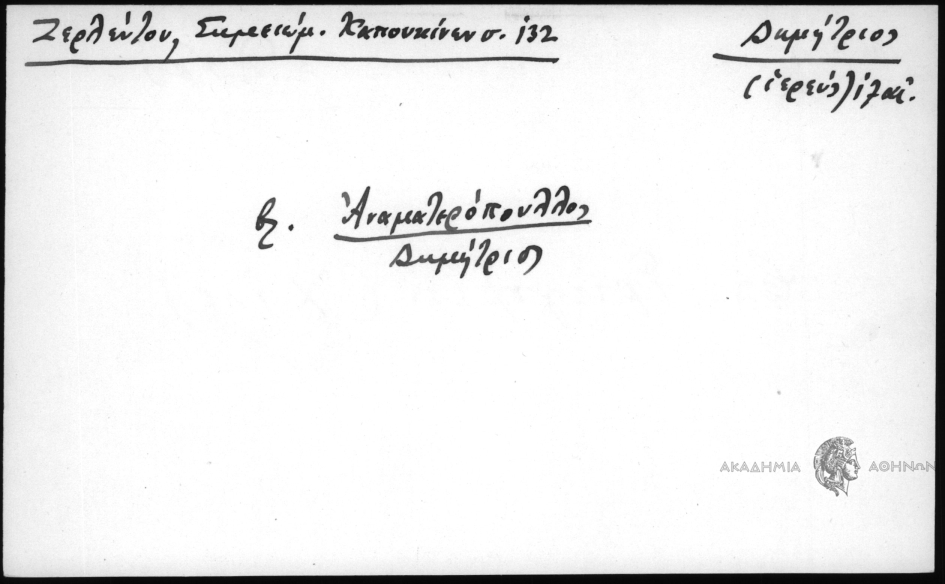 Ζερλέντου, Σημειώμ. Καπουκίνων σ. 132
Δημήτριος
(ἱερεύς) ιζ αἰ.
βλ. Ἀναματερόπουλλος
Δημήτριος
ΑΚΑΔΗΜΙΑ ΑΘΗΝΩΝ